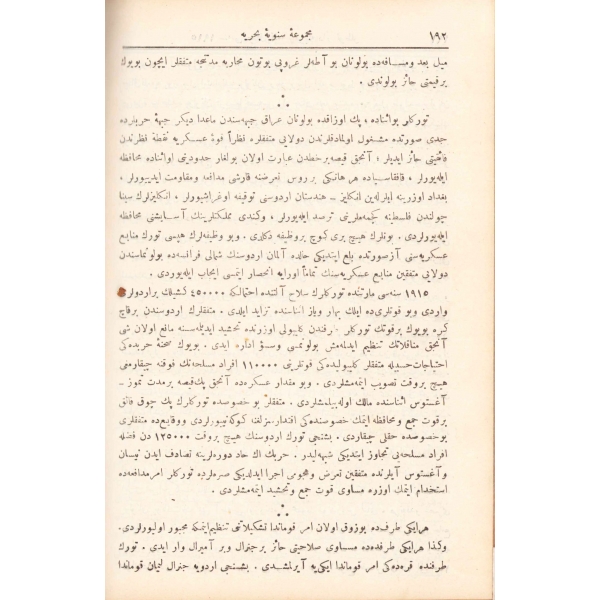 ١٩٢ مجموعهٔ سنویهٔ بحریه
میل بعد ومسافه‌ده بولونان بو آطه‌لر غروپی بوتون محاربه مدتجه متفقلر ایچون بویوك
بر قیمتی حائز بولوندی .
تورکلر بواثناده ، پك اوزاقده بولونان عراق جبهه‌سندن ماعدا دیكر جبههٔ حربلرده
جدی صورتده مشغول اولمادقلرندن دولایی متفقلره نظراً قوهٔ عسكریه نقطهٔ نظرندن
فائقیتی حائز ایدیلر ؛ آنجق قیصه برخطدن عبارت اولان بولغار حدودینی اواثناده محافظه
ایله‌یورلر ، قافقاسیاده هر هانكی بر روس تعرضنه قارشی مدافعه ومقاومت ایدییورلر ،
بغداد اوزرینه ایلرله‌ین انكلیز ـ هندستان اردوسنی توقیفه اوغراشیورلر ، انكلیزلرك سینا
چولندن فلسطینه كچمه‌لرینی ترصد ایله‌یورلر ، وكندی مملكتلرینك آسایشنی محافظه
ایله‌یورلردی . بونلرك هیچ بری كوچ بروظیفه دكلدی . وبو وظیفه‌لرك هپسی تورك منابع
عسكریه‌سنی آزصورتده بلع ایتدیكی حالده آلمان اردوسنك شمالی فرانسه‌ده بولونماسندن
دولایی متفقین منابع عسكریه‌سنك تماماً اورایه انحصار ایتمسی ایجاب ایله‌یوردی .
١٩١٥ سنه‌سی مارتنده توركلرك سلاح آلتنده احتمالكه ٤٥٠٠٠٠ كشیلك براردولری
واردی وبو قوتلری‌ده ایلك بهار ویاز اثناسنده تزاید ایلدی . متفقلرك اردوسندن برقاچ
كره بویوك برقوتك توركلر طرفندن كلیبولی اوزرنده تحشید ایدیلمه‌سنه مافع اولان شی
آنجق مناقلاتك تنظیم ایدلمه‌مش بولونمسی وسؤ اداره ایدی . بویوك صحنهٔ حربده‌كی
احتیاجات حسبیله متفقلر كلیبولیده‌كی قوتلرینی ١١٠٠٠٠ افراد مسلحه‌نك فوقنه چیقارمه‌نی
هیچ بروقت تصویب ایتمه‌مشلردی . وبو مقدار عسكره‌ده آنجق پك‌قیصه برمدت تموز ـ
آغستوس اثناسنده مالك اوله‌بیلمشلردی . متفقلر بو خصوصده توركلرك پك چوق فائق
برقوت جمع ومحافظه ایتمك خصوصنده‌كی اقتدارسزلغنه كوكه‌نیورلردی ووقایع‌ده متفقلری
بوخصوصده حقلی چیقاردی . بشنجی تورك اردوسنك هیچ بروقت ١٢٥٠٠٠ دن فضله
افراد مسلحه‌یی تجاوز ایتدیكی شبهه‌لیدر . حربك اك حاد دوره‌لرینه تصادف ایدن نیسان
وآغستوس آیلرنده متفقین تعرض وهجومی اجرا ایدلدیكی صره‌لرده توركلر امر مدافعه‌ده
استخدام ایتمك اوزره مساوی قوت جمع وتحشید ایتمه‌مشلردی .
هرایكی طرف‌ده بوزوق اولان امر قوماندا تشكیلاتنی تنظیم‌ایتمكه مجبور اولیورلردی.
وكذا هرایكی طرفده‌ده مساوی صلاحیتی حائز برجنرال وبر آمیرال وار ایدی . تورك
طرفنده قره‌ده‌كی امر قوماندا ایكی‌یه آیرلمشدی . بشنجی اردویه جنرال لیمان قوماندا